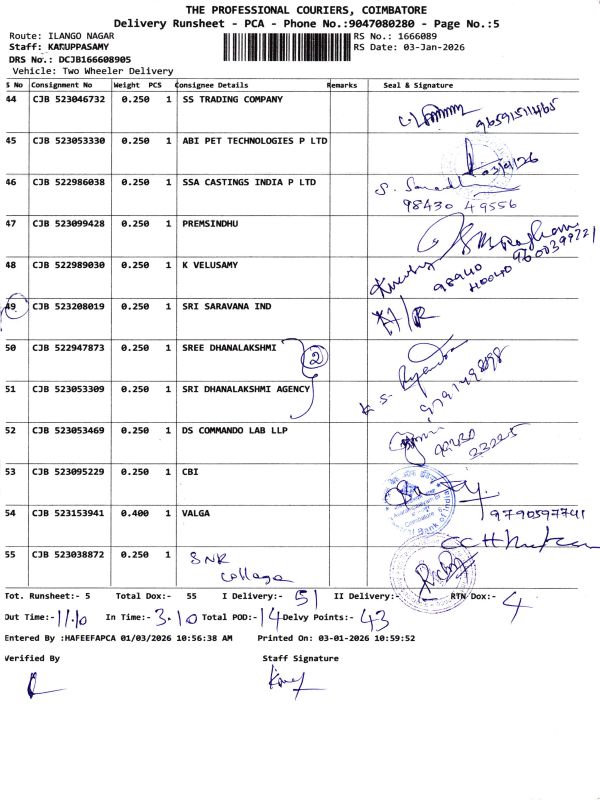 THE PROFESSIONAL COURIERS, COIMBATORE
Delivery Runsheet - PCA - Phone No.:9047080280 - Page No.:5
Route: ILANGO NAGAR RS No.: 1666089
Staff: KARUPPASAMY RS Date: 03-Jan-2026
DRS No.: DCJB166608905
Vehicle: Two Wheeler Delivery
S No Consignment No Weight PCS Consignee Details Remarks Seal & Signature
44 CJB 523046732 0.250 1 SS TRADING COMPANY
45 CJB 523053330 0.250 1 ABI PET TECHNOLOGIES P LTD
46 CJB 522986038 0.250 1 SSA CASTINGS INDIA P LTD
98430 49556
47 CJB 523099428 0.250 1 PREMSINDHU
48 CJB 522989030 0.250 1 K VELUSAMY
98940
49 CJB 523208019 0.250 1 SRI SARAVANA IND
50 CJB 522947873 0.250 1 SREE DHANALAKSHMI 2
51 CJB 523053309 0.250 1 SRI DHANALAKSHMI AGENCY
9791498098
52 CJB 523053469 0.250 1 DS COMMANDO LAB LLP
53 CJB 523095229 0.250 1 CBI
54 CJB 523153941 0.400 1 VALGA 9790597741
55 CJB 523038872 0.250 1 SNR
College
Tot. Runsheet:- 5 Total Dox:- 55 I Delivery:- 51 II Delivery:- RTN Dox:- 4
Out Time:- 11.10 In Time:- 3.10 Total POD:- 14 Delvy Points:- 43
Entered By :HAFEEFAPCA 01/03/2026 10:56:38 AM Printed On: 03-01-2026 10:59:52
Verified By Staff Signature